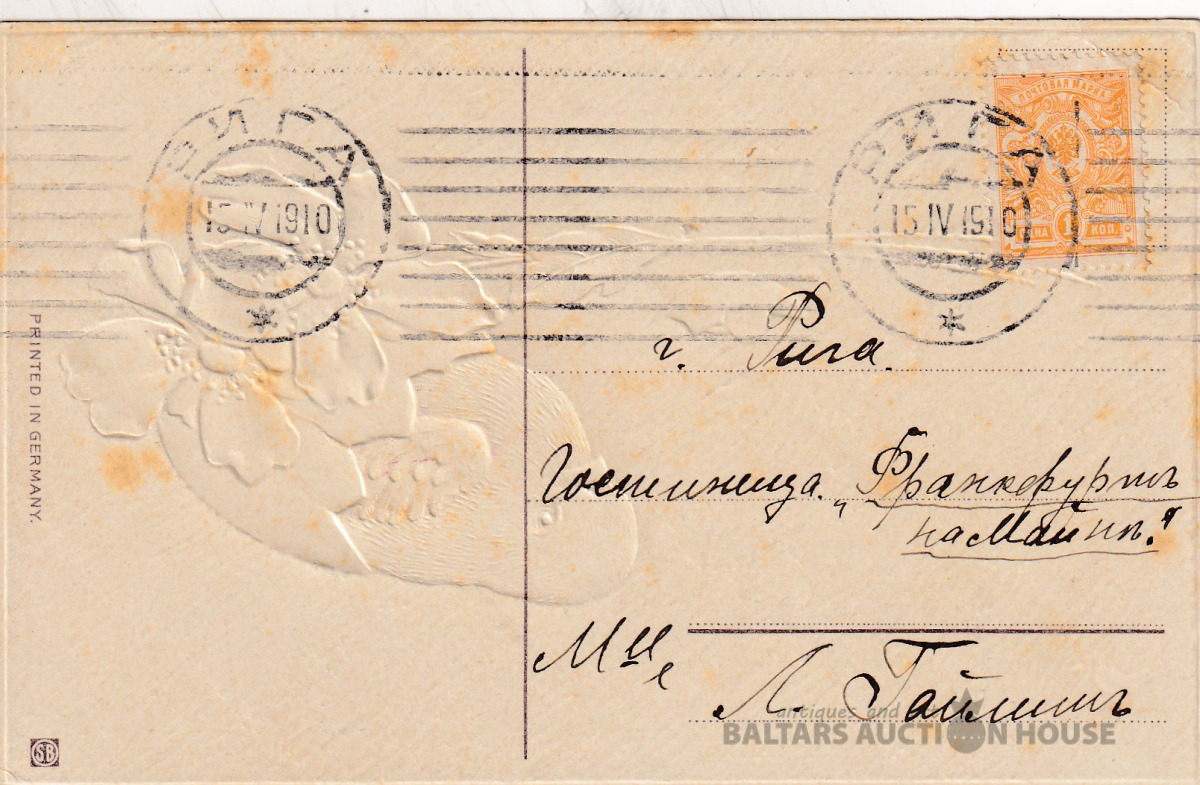 РИГА
15 IV 1910
РИГА
15 IV 1910
ПОЧТОВАЯ МАРКА
1
КОП.
PRINTED IN GERMANY.
г. Рига.
Гостиница. „Франкфуртъ
на Майнѣ."
Мце
Л. Гайлишъ
antiques and
BALTARS AUCTION HOUSE
SB